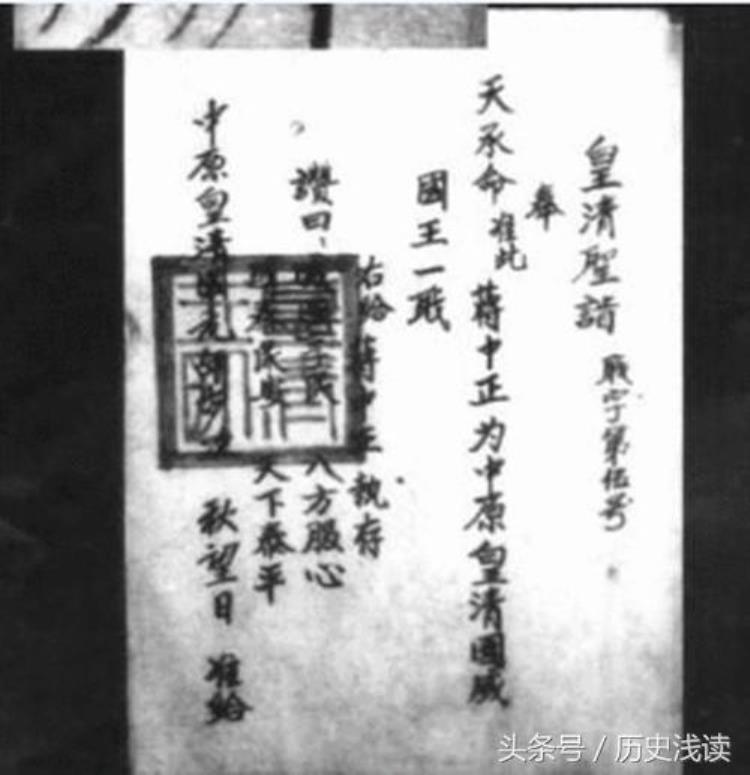 皇清聖誥
职字丁第伍号
奉
天承命准此 蔣中正为中原皇清國威
國王一职
右给蔣中正 執存
讚曰、 民 八方服心
民安 天下泰平
中原皇清 元 秋望日 准给
头条号 / 历史浅读